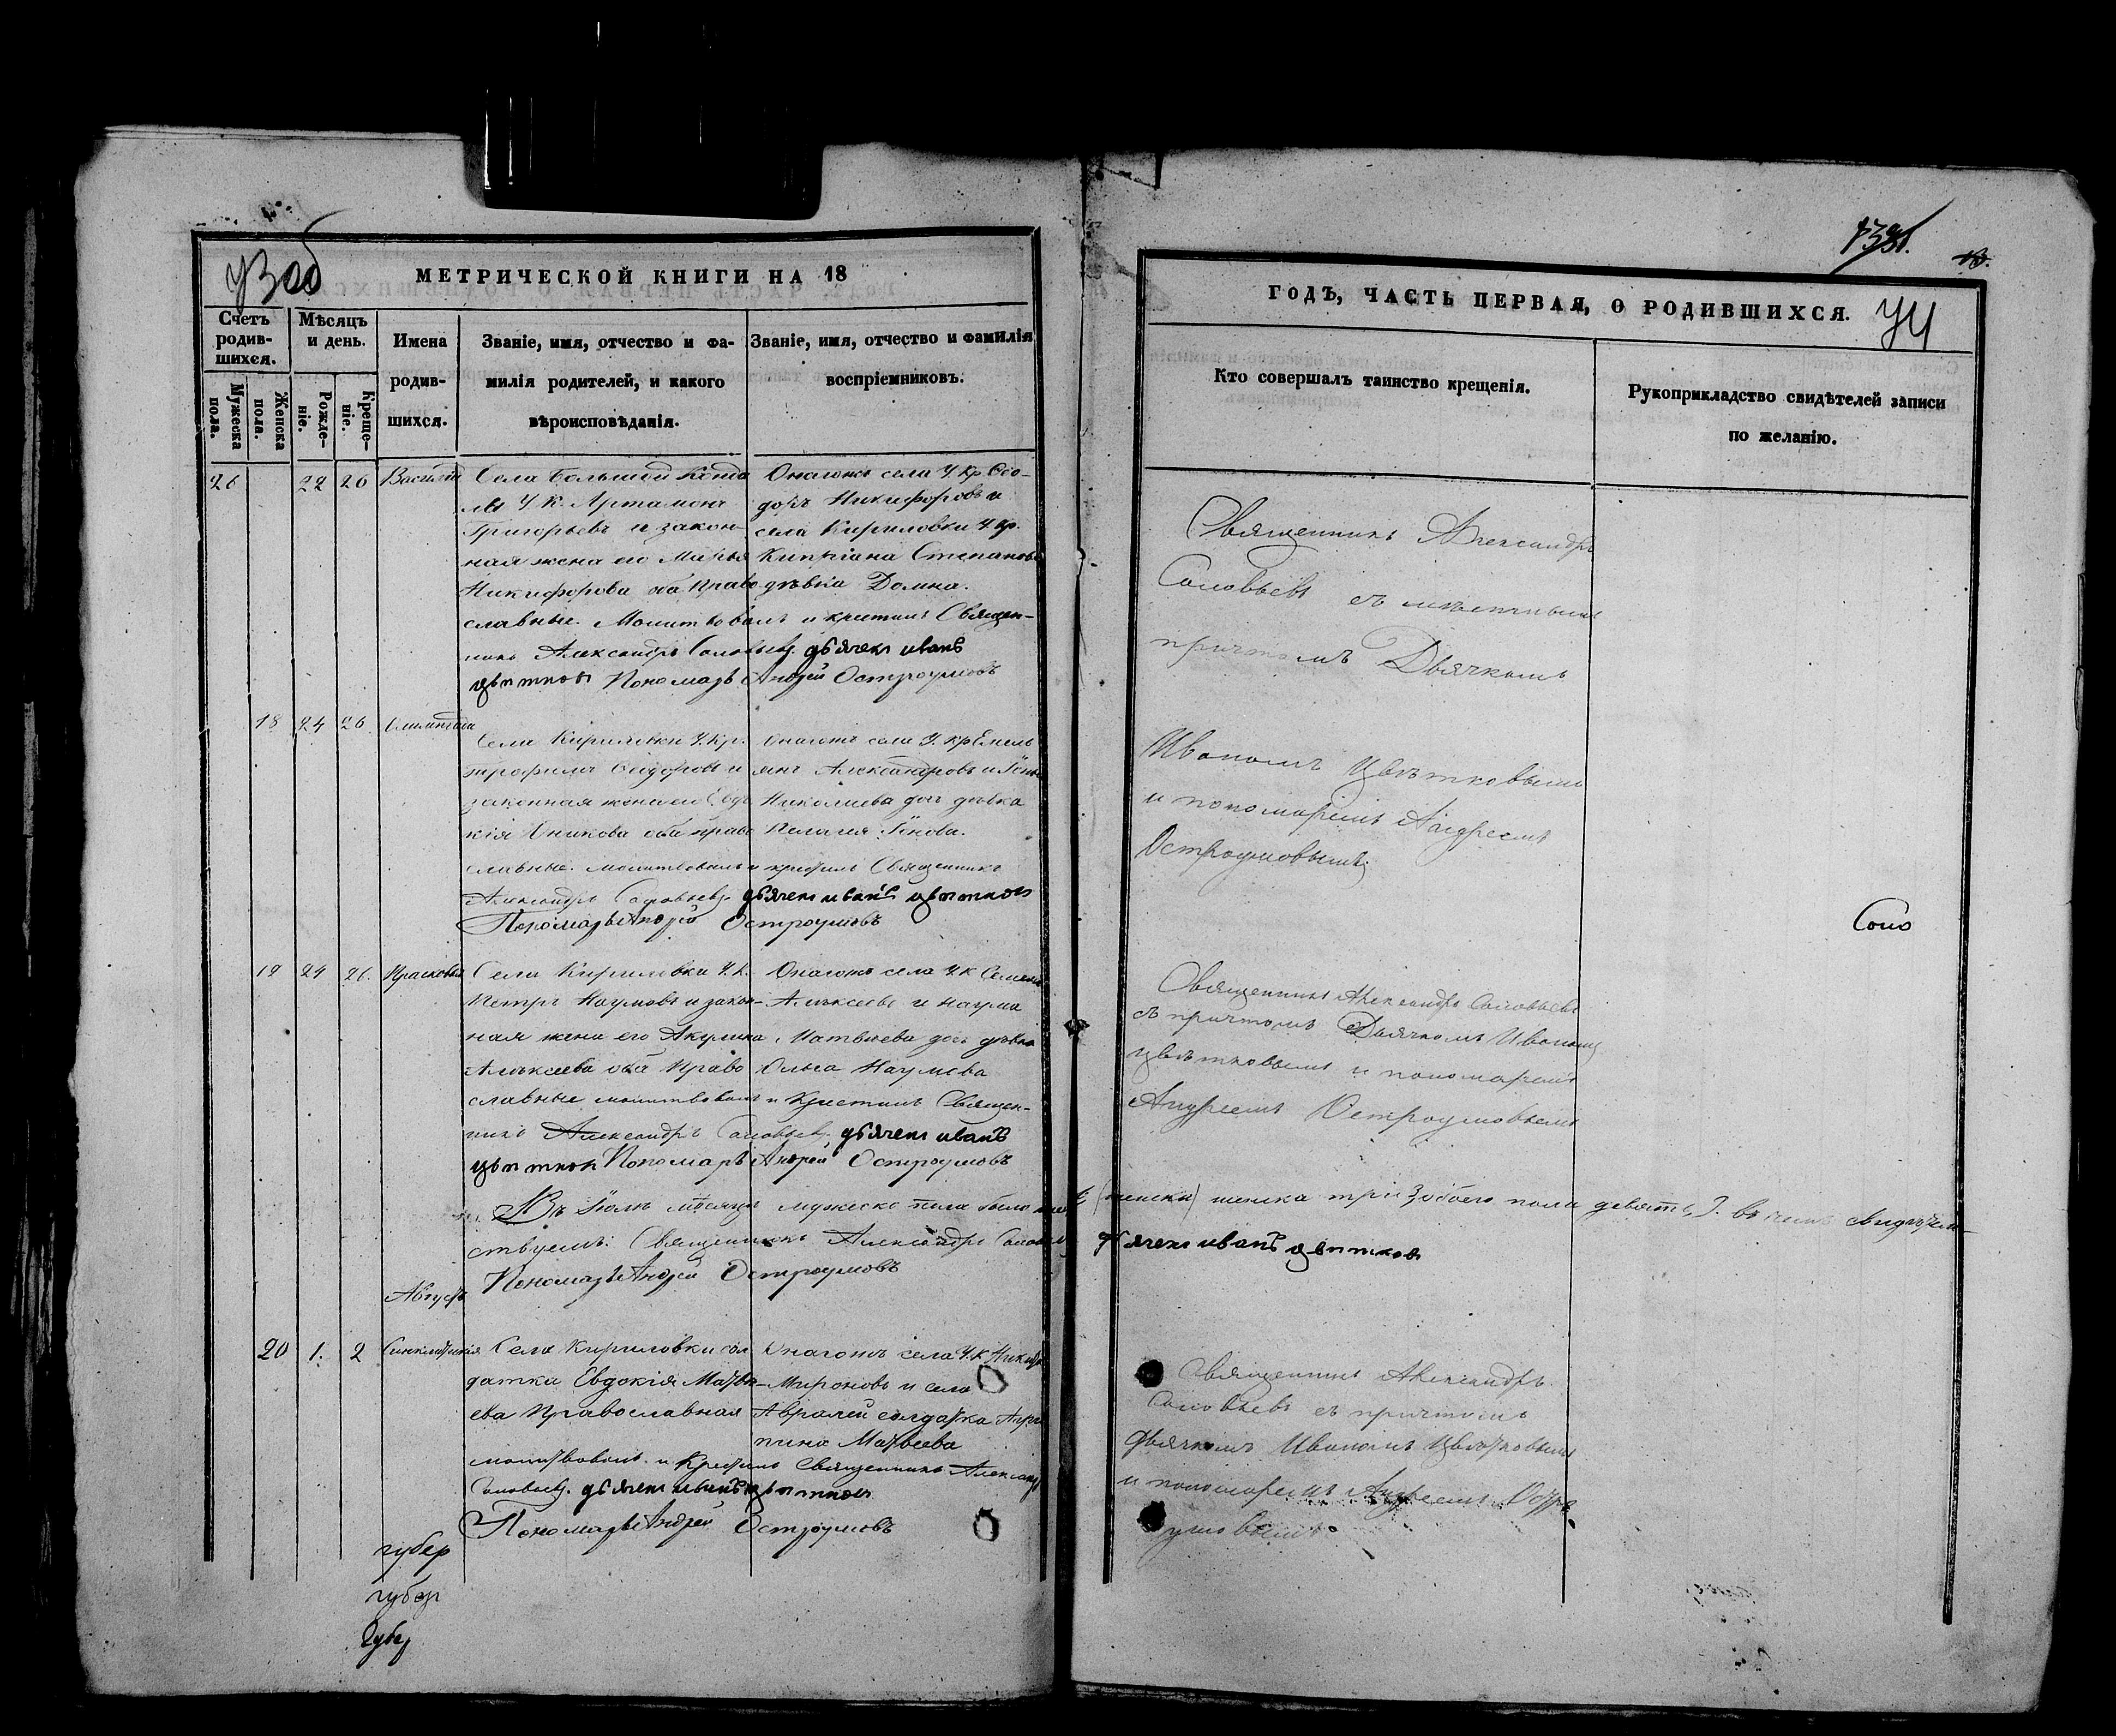 МЕТРИЧЕСКОЙ КНИГИ НА 18
Счетъ родив-шихся.
Мужеска пола.
Женска пола.
Мѣсяцъ и день.
Рожде-ніе.
Креще-ніе.
Имена
родив-
шихся.
Званіе, имя, отчество и фа-
милія родителей, и какого
вѣроисповѣданія.
Званіе, имя, отчество и фамилія
воспріемниковъ.
26 22 26 Василій
Села Большой Кондо
лы У. К. Артамонъ
Григорьевъ и закон-
ная жена его Марья
Никифорова оба право
славные. Молитвовалъ и крестилъ Священ-
никъ Александръ Соловьевъ. дьячекъ иванъ
цветковъ Пономарь Андрей Остроумовъ
Онагожъ села У. Кр Ѳео-
доръ Никифоровъ и
села Кириловки У. кр.
Кипріана Степанова
дѣвка Домна.
18 24 26. Олимпіада
Села Кириловки У. Кр.
Трофимъ Сидоровъ и
законная жена его Евдо
кія оба право
славные. молитвовалъ и крестилъ Священникъ
Александръ Соловьевъ. дьячекъ иванъ цветковъ
Пономарь Андрей Остроумовъ
Онагожъ села У. кр Емель
янъ Александровъ и
Николаева дочь дѣвка
Пелагея
19 24 26. Прасковья
Села Кириловки У. К.
Петръ Наумовъ и закон-
ная жена его Акулина
Алексеева оба Право
славные молитвовалъ и Крестилъ Священ-
никъ Александръ Соловьевъ, дьячекъ иванъ
цветковъ Пономарь Андрей Остроумовъ
Онагожъ села У. К Семенъ
Алексеевъ и Наума
Матвеева дочь дѣвка
Ольга Наумова
Въ Іюлѣ мѣсяцѣ мужеска пола было
ствуемъ: Священникъ Александръ Соловьевъ
Пономарь Андрей Остроумовъ
Августъ
20 1. 2 Синклитикія
Села Кириловки сол
датка Евдокія Матве-
ева Православная
молитвовалъ и Крестилъ Священникъ Александръ
Соловьевъ. дьячекъ иванъ цветковъ
Пономарь Андрей Остроумовъ
Онагожъ села У. К Никита
Мироновъ и села
солдатка Агри
пина Матвеева
губер
губер
Губер
ГОДЪ, ЧАСТЬ ПЕРВАЯ, О РОДИВШИХСЯ.
Кто совершалъ таинство крещенія.
Рукоприкладство свидѣтелей записи
по желанію.
Священникъ Александръ
Соловьевъ съ мѣстнымъ
причтомъ Дьячкомъ
Иваномъ Цвѣтковымъ
и пономаремъ Андреемъ
Остроумовымъ.
Священникъ Александръ Соловьевъ
съ причтомъ Дьячкомъ Иваномъ
цвѣтковымъ и пономаремъ
Андреемъ Остроумовымъ
(женска) женска три обоего пола девять, въ чемъ свидѣтель-
дьячекъ иванъ цветковъ
Священникъ Александръ
Соловьевъ съ причтомъ
дьячкомъ Иваномъ Цвѣтковымъ
и пономаремъ Андреемъ Остро
умовымъ